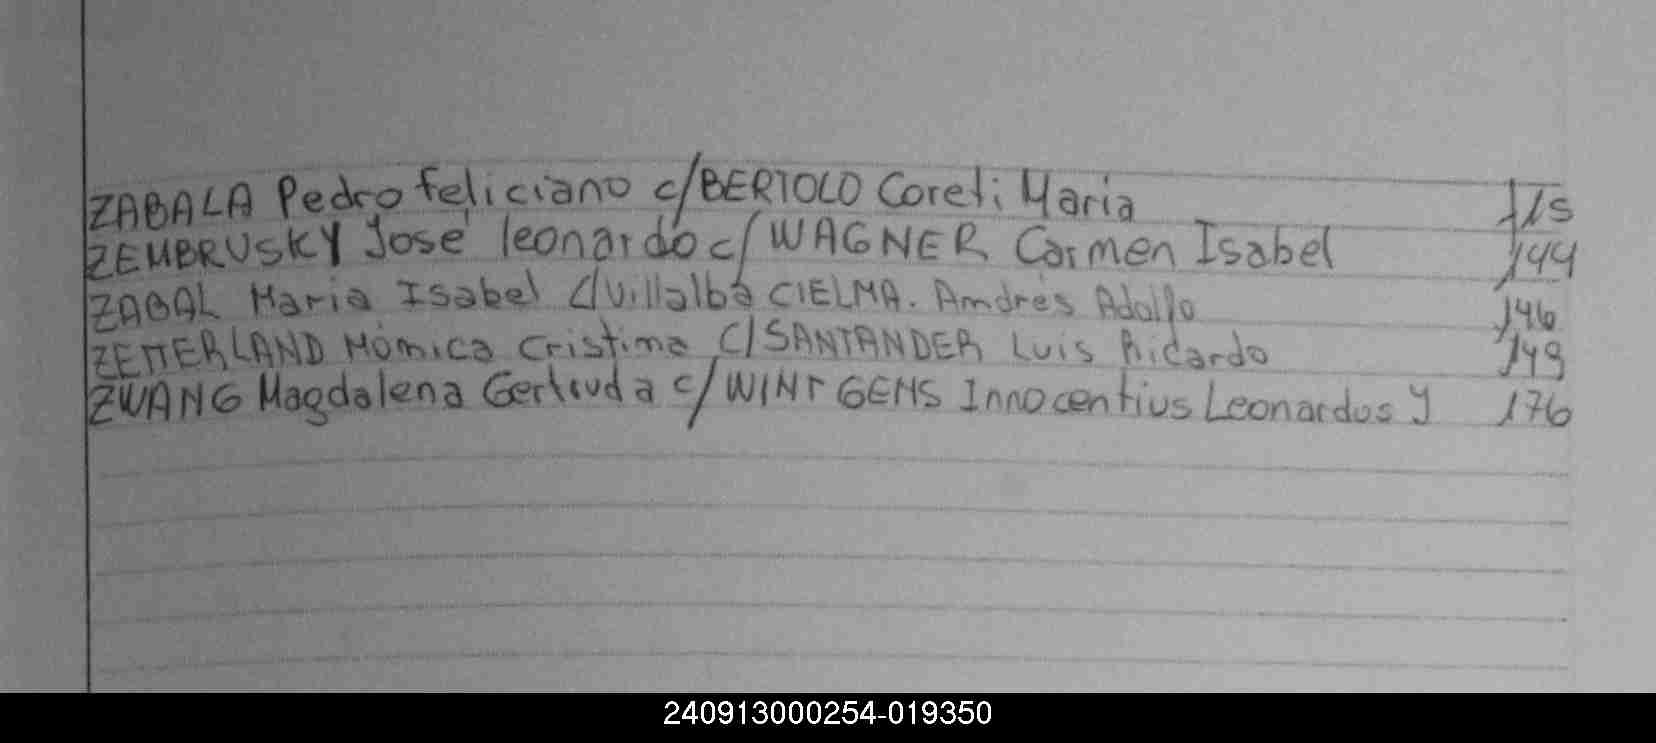 ZABALA Pedro feliciano c/BERTOLO Coreti Maria
ZEMBRUSKY José leonardo c/ WAGNER Carmen Isabel 144
ZABAL Maria Isabel C/Villalba CIELMA. Andrés Adolfo 146
ZETTERLAND Mónica Cristina C/SANTANDER Luis Ricardo 149
ZWANG Magdalena Gertruda c/ WINTGENS Innocentius Leonardus Y 176
240913000254-019350